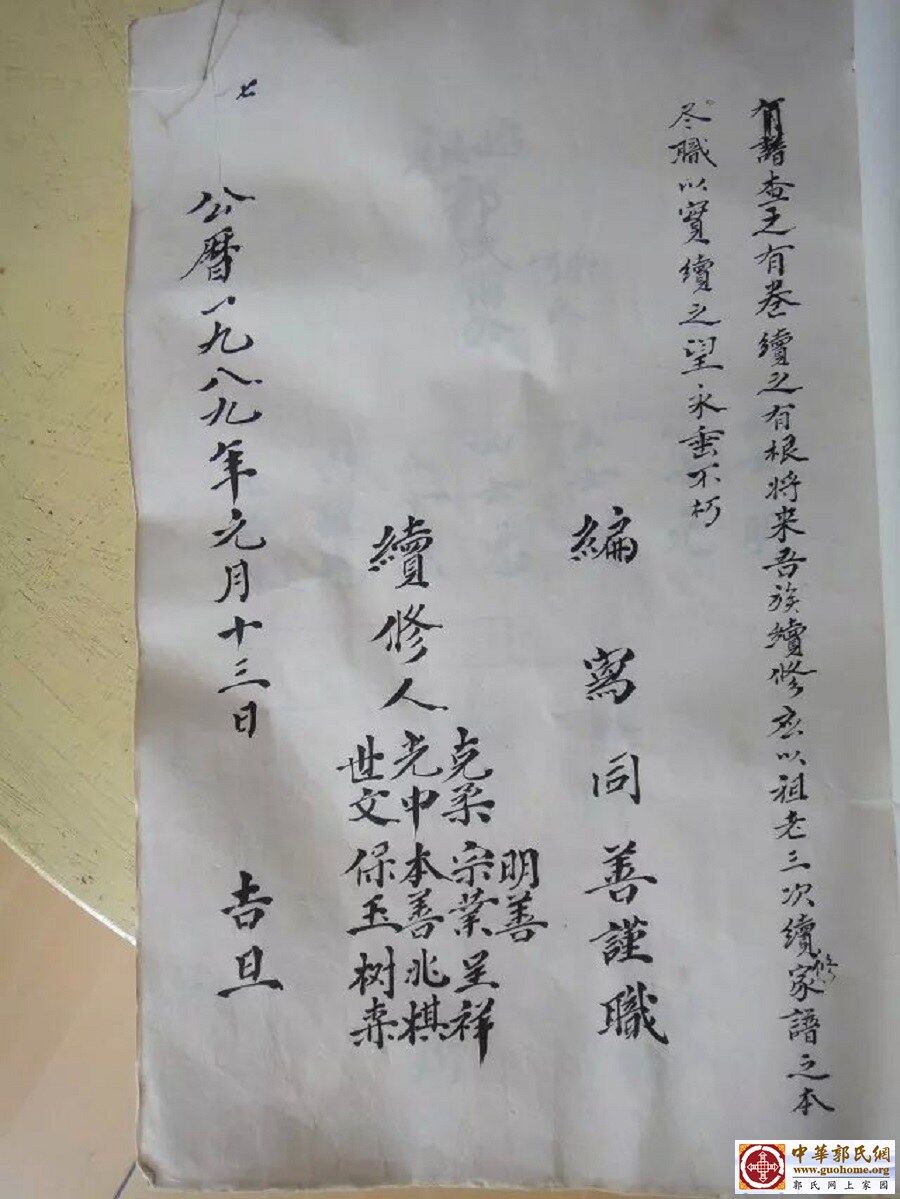 有譜查之有卷續之有根將来吾族續修应以祖老三次續修家譜之本
尽職以實續之望永垂不朽
編寫同善謹職
明善
克柔宗業呈祥
續修人光中本善兆棋
世文保玉树森
公曆一九八九年元月十三日 吉旦
七
中華郭氏網
www.guohome.org
郭氏网上家园